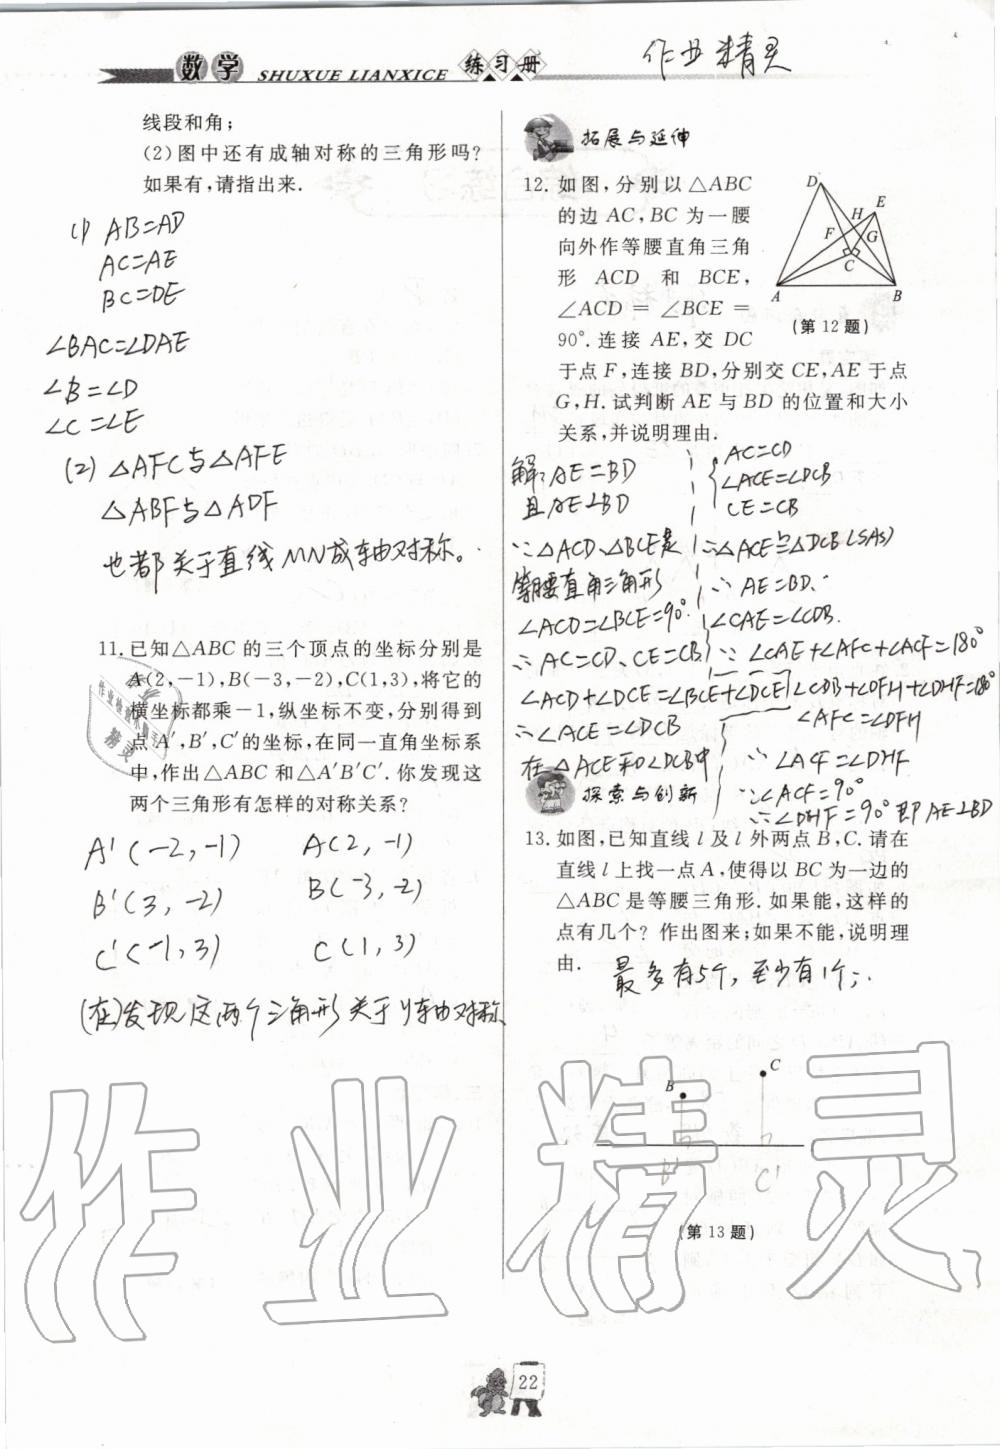 数学
SHUXUE LIANXICE
练习册
作业精灵
线段和角；
(2)图中还有成轴对称的三角形吗？
如果有,请指出来.
(1) AB=AD
AC=AE
BC=DE
∠BAC=∠DAE
∠B=∠D
∠C=∠E
(2) △AFC与△AFE
△ABF与△ADF
也都关于直线MN成轴对称。
11. 已知△ABC 的三个顶点的坐标分别是
A(2,-1),B(-3,-2),C(1,3),将它的
横坐标都乘-1,纵坐标不变,分别得到
点 A′,B′,C′的坐标,在同一直角坐标系
中,作出△ABC 和△A′B′C′. 你发现这
两个三角形有怎样的对称关系？
A'(-2,-1) A(2,-1)
B'(3,-2) B(-3,-2)
C'(-1,3) C(1,3)
(在)发现这两个三角形关于y轴对称
拓展与延伸
12. 如图,分别以△ABC
的边 AC,BC 为一腰
向外作等腰直角三角
形 ACD 和 BCE,
∠ACD = ∠BCE =
90°. 连接 AE,交 DC
于点 F,连接 BD,分别交 CE,AE 于点
G,H. 试判断 AE 与 BD 的位置和大小
关系,并说明理由.
D
H
E
F
G
C
A
B
(第 12 题)
解: AE=BD
且AE⊥BD
∵△ACD、△BCE是
等腰直角三角形
∠ACD=∠BCE=90°
∴ AC=CD、CE=CB
∠ACD+∠DCE=∠BCE+∠DCE
∴∠ACE=∠DCB
在△ACE和∠DCB中
AC=CD
∠ACE=∠DCB
CE=CB
∴△ACE≌△DCB(SAS)
∴ AE=BD.
∠CAE=∠CDB.
∵ ∠CAE+∠AFC+∠ACF=180°
∠CDB+∠DFH+∠DHF=180°
∠AFC=∠DFH
∴ ∠ACF=∠DHF
∵∠ACF=90°
∴∠DHF=90°即AE⊥BD
探索与创新
13. 如图,已知直线 l 及 l 外两点 B,C. 请在
直线 l 上找一点 A,使得以 BC 为一边的
△ABC 是等腰三角形. 如果能,这样的
点有几个？ 作出图来;如果不能,说明理
由.
最多有5个, 至少有1个;
B
C
B'
C'
(第 13 题)
作业精灵
22